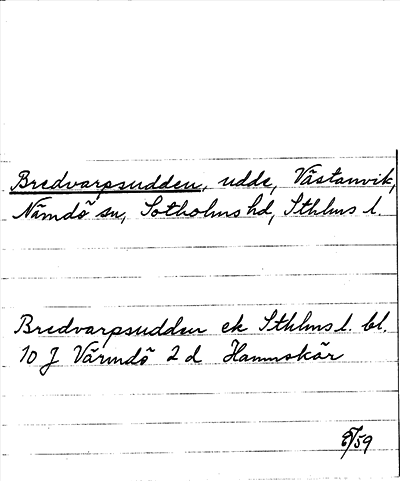 Bredvarpsudden, udde, Västanvik,
Nämdö sn, Sotholms hd, Sthlms l.
Bredvarpsudden ek Sthlms l. bl.
10 J Värmdö 2 d Hammskär
/59